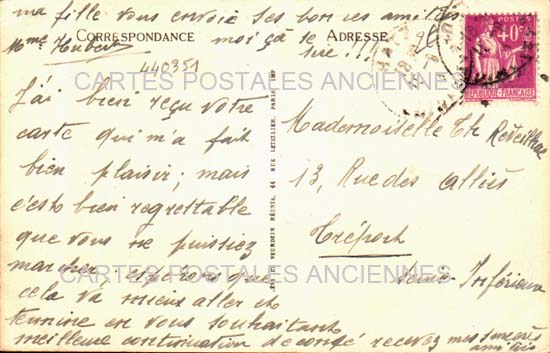 ma fille vous envoie ses bonnes amitiés
Mme Hubert
CORRESPONDANCE
moi ça
ADRESSE
POSTES
40c
RÉPUBLIQUE FRANÇAISE
440351
CARTES POSTALES ANCIENNES
J'ai bien reçu votre
carte qui m'a fait
bien plaisir; mais
c'est bien regrettable
que vous ne puissiez
marcher; espérons que
cela va mieux aller et
termine en vous souhaitant
meilleure continuation de santé recevez mes sincères
amitiés
Mademoiselle Th Réveilhac
13, Rue des Alliés
Tréport
Seine Inférieure
CARTES POSTALES ANCIENNES
NEURDEIN RÉUNIS, 44 RUE LETELLIER, PARIS IMP